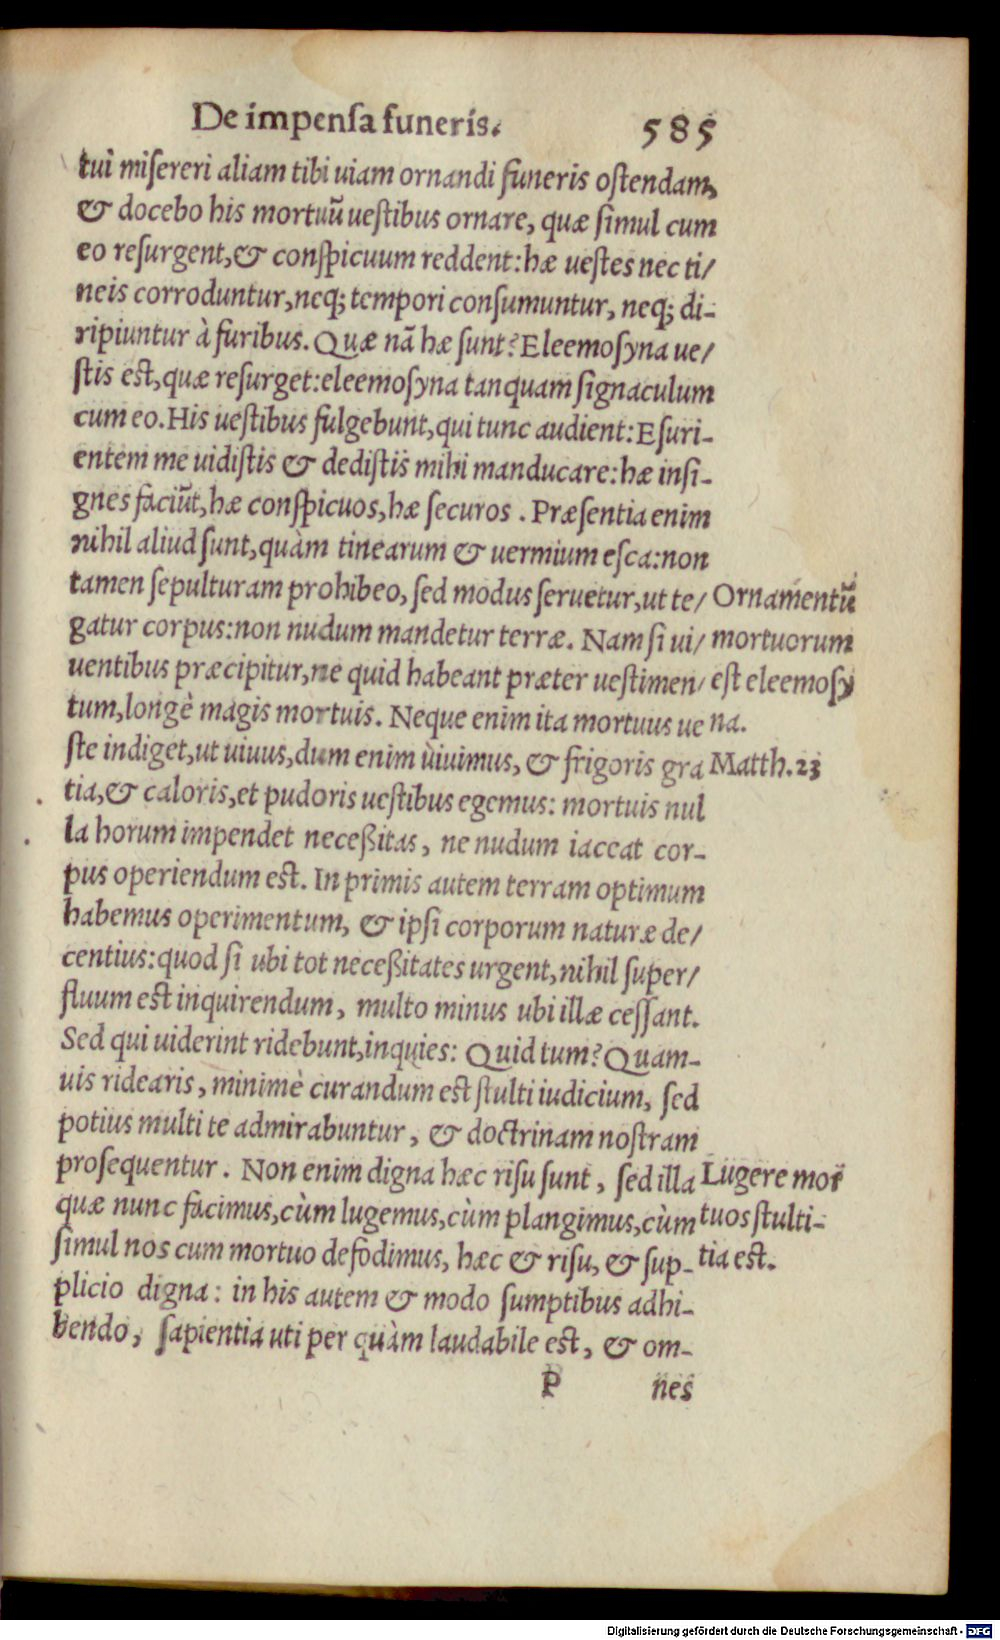 De impensa funeris. 585
tui misereri aliam tibi uiam ornandi funeris ostendam,
& docebo his mortuū uestibus ornare, quæ simul cum
eo resurgent,& conspicuum reddent: hæ uestes nec ti/
neis corroduntur,neq; tempori consumuntur, neq; di-
ripiuntur à furibus. Quæ nā hæ sunt? Eleemosyna ue/
stis est,quæ resurget: eleemosyna tanquam signaculum
cum eo. His uestibus fulgebunt,qui tunc audient: Esuri-
entem me uidistis & dedistis mihi manducare: hæ insi-
gnes faciūt,hæ conspicuos,hæ securos. Præsentia enim
nihil aliud sunt,quàm tinearum & uermium esca: non
tamen sepulturam prohibeo, sed modus seruetur,ut te/
gatur corpus: non nudum mandetur terræ. Nam si ui/
uentibus præcipitur,ne quid habeant præter uestimen/
tum,longè magis mortuis. Neque enim ita mortuus ue
ste indiget,ut uiuus,dum enim ùiuimus, & frigoris gra
tia,& caloris,et pudoris uestibus egemus: mortuis nul
la horum impendet neceßitas, ne nudum iaceat cor-
pus operiendum est. In primis autem terram optimum
habemus operimentum, & ipsi corporum naturæ de/
centius: quod si ubi tot neceßitates urgent,nihil super/
fluum est inquirendum, multo minus ubi illæ cessant.
Sed qui uiderint ridebunt,inquies: Quid tum? Quam-
uis ridearis, minimè curandum est stulti iudicium, sed
potius multi te admirabuntur, & doctrinam nostram
prosequentur. Non enim digna hæc risu sunt, sed illa
quæ nunc facimus,cùm lugemus,cùm plangimus,cùm
simul nos cum mortuo defodimus, hæc & risu, & sup-
plicio digna: in his autem & modo sumptibus adhi-
bendo, sapientia uti per quàm laudabile est, & om-
P nes
Ornamentū
mortuorum
est eleemosy
na.
Matth.23
Lugere mor
tuos stulti-
tia est.
Digitalisierung gefördert durch die Deutsche Forschungsgemeinschaft - DFG